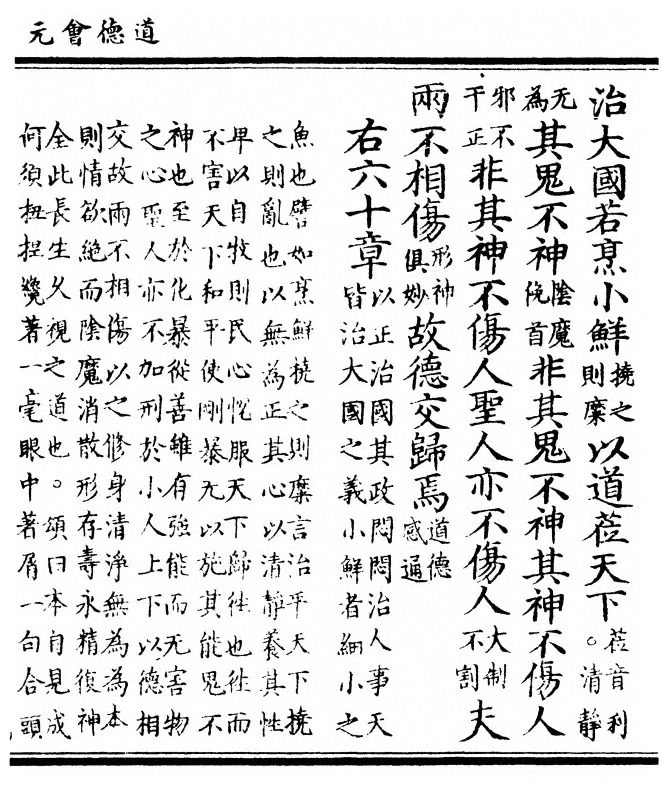 道德會元
治大國若烹小鮮撓之則糜以道莅天下莅音利。清靜
无為其鬼不神陰魔俛首非其鬼不神其神不傷人
邪不干正非其神不傷人聖人亦不傷人大制不割夫
兩不相傷形神俱妙故德交歸焉道德感通
右六十章以正治國其政悶悶治人事天皆治大國之義小鮮者細小之
魚也譬如烹鮮撓之則糜言治平天下撓
之則亂也以無為正其心以清靜養其性
卑以自牧則民心悅服天下歸徃也徃而
不害天下和平使剛暴无以施其能鬼不
神也至於化暴從善雖有強能而无害物
之心聖人亦不加刑於小人上下以德相
交故兩不相傷以之修身清淨無為為本
則情欲絕而陰魔消散形存壽永精復神
全此長生久視之道也。頌曰本自見成
何須扭揑纔著一毫眼中著屑一句合頭